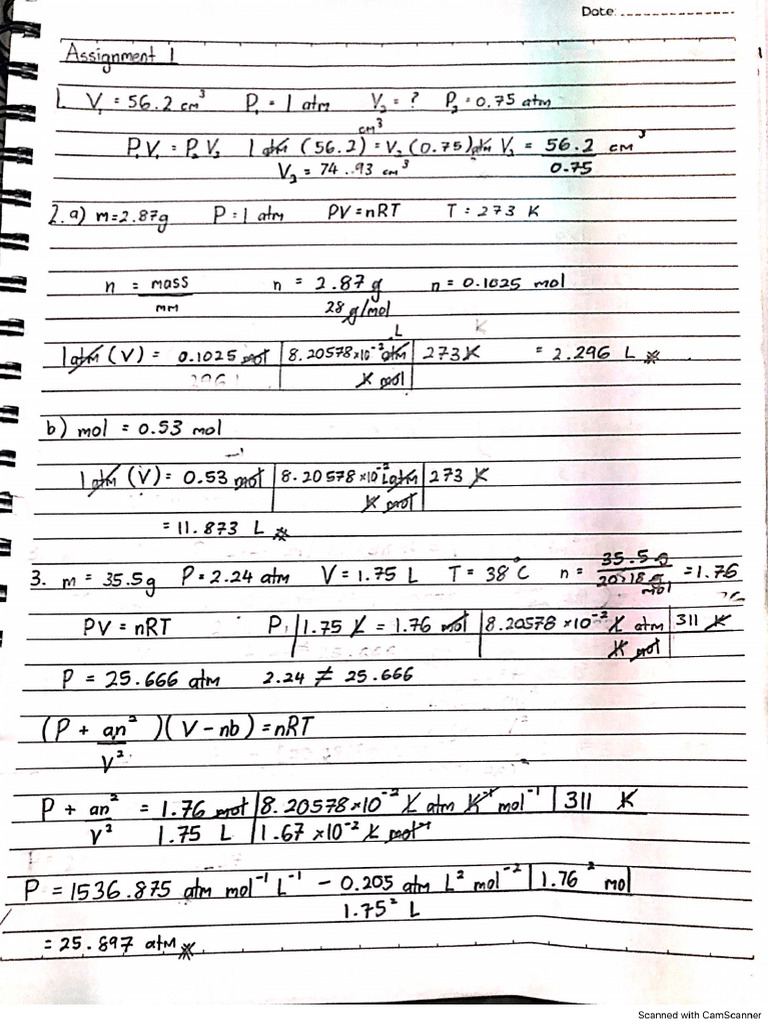 Date:
Assignment 1
1. V₁ = 56.2 cm³ P₁ = 1 atm V₂ = ? P₂ = 0.75 atm
P₁V₁ = P₂V₂ 1 atm (56.2) cm³ = V₂ (0.75) atm V₂ = 56.2 cm³ / 0.75
V₂ = 74.93 cm³
2.a) m = 2.87g P = 1 atm PV = nRT T = 273 K
n = mass / mm n = 2.87 g / 28 g/mol n = 0.1025 mol
1 atm (V) = 0.1025 mol | 8.20578 x10⁻² L atm / K mol | 273 K = 2.296 L
b) mol = 0.53 mol
1 atm (V) = 0.53 mol | 8.20578 x10⁻² L atm / K mol | 273 K
= 11.873 L
3. m = 35.5g P = 2.24 atm V = 1.75 L T = 38°C n = 35.5 g / 20.18 g/mol = 1.76
PV = nRT P | 1.75 L = 1.76 mol | 8.20578 x10⁻² L atm / K mol | 311 K
P = 25.666 atm 2.24 ≠ 25.666
(P + an² / V²)(V - nb) = nRT
P + an² / V² = 1.76 mol / 1.75 L | 8.20578 x10⁻² L atm K⁻¹ mol⁻¹ / 1.67 x10⁻² L mol⁻¹ | 311 K
P = 1536.875 atm mol⁻¹ L⁻¹ - 0.205 atm L² mol⁻² | 1.76² mol / 1.75² L
= 25.897 atm
Scanned with CamScanner